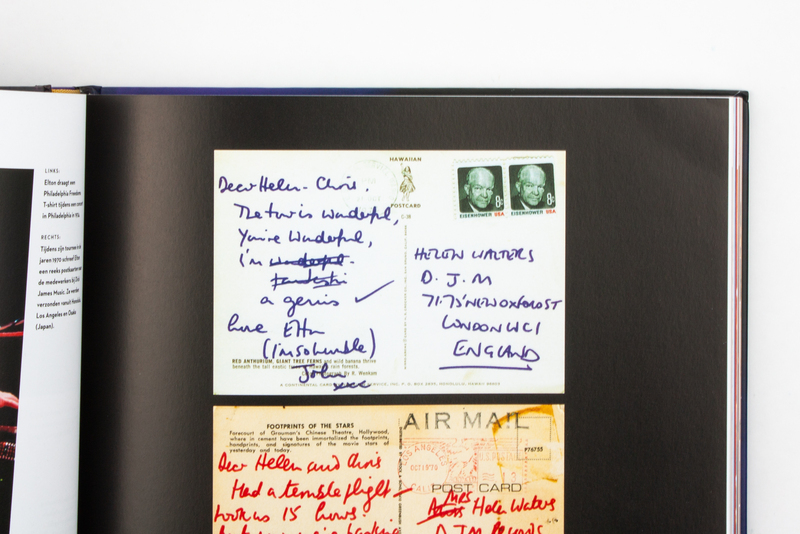 LINKS:
Elton draagt een
Philadelphia Freedom
T-shirt tijdens een
in Philadelphia in
RECHTS:
Tijdens zijn tournee in de
jaren 1970 schreef Elton
een reeks postkaarten
de medewerkers bij Dick
James Music. Ze werden
verzonden vanuit Honolulu
Los Angeles en Osaka
(Japan).
HAWAIIAN
POSTCARD
C-38
8c
8c
EISENHOWER USA
EISENHOWER USA
Dear Helen - Chris,
The tour is wonderful,
You're Wonderful,
I'm wonderful -
fantastic
a genius ✓
love Elton
(I'm so humble)
John
xxx
HELEN WALTERS
D. J. M
71-75 NEW OXFORD ST
LONDON WC1
ENGLAND
RED ANTHURIUM, GIANT TREE FERNS and wild banana thrive
beneath the tall exotic rain forests.
by R. Wenkam
FOOTPRINTS OF THE STARS
Forecourt of Grauman's Chinese Theatre, Hollywood,
where in cement have been immortalized the footprints,
handprints, and signatures of the movie stars of
yesterday and today.
AIR MAIL
P76755
LOS ANGELES
OCT 1970
CALIF
POST CARD
Dear Helen and Chris
Had a terrible flight -
took us 15 hours.
Mrs
Helen Walters
D J M Records